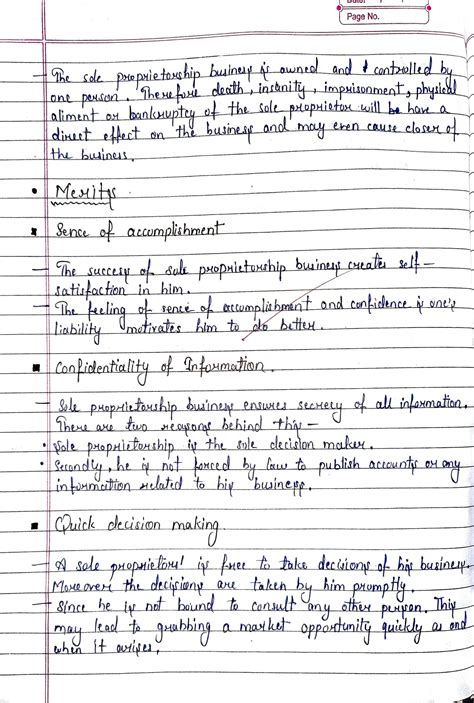 Page No.
— The sole proprietorship business is owned and controlled by
one person. Therefore death, insanity, imprisonment, physical
aliment or bankruptcy of the sole proprietor will have a
direct effect on the business and may even cause closer of
the business.
• Merits
▪ Sence of accomplishment
— The success of sole proprietorship business creates self-
satisfaction in him.
— The feeling of sence of accomplishment and confidence is one's
liability motivates him to do better.
▪ Confidentiality of Information.
— Sole proprietorship business ensures secrecy of all information.
There are two reasons behind this—
• Sole proprietorship is the sole decision maker.
• Secondly, he is not forced by law to publish accounts or any
information related to his business.
▪ Quick decision making.
— A sole proprietors' is free to take decisions of his business.
Moreover the decisions are taken by him promptly.
— Since he is not bound to consult any other person. This
may lead to grabbing a market opportunity quickly as and
when it arises.